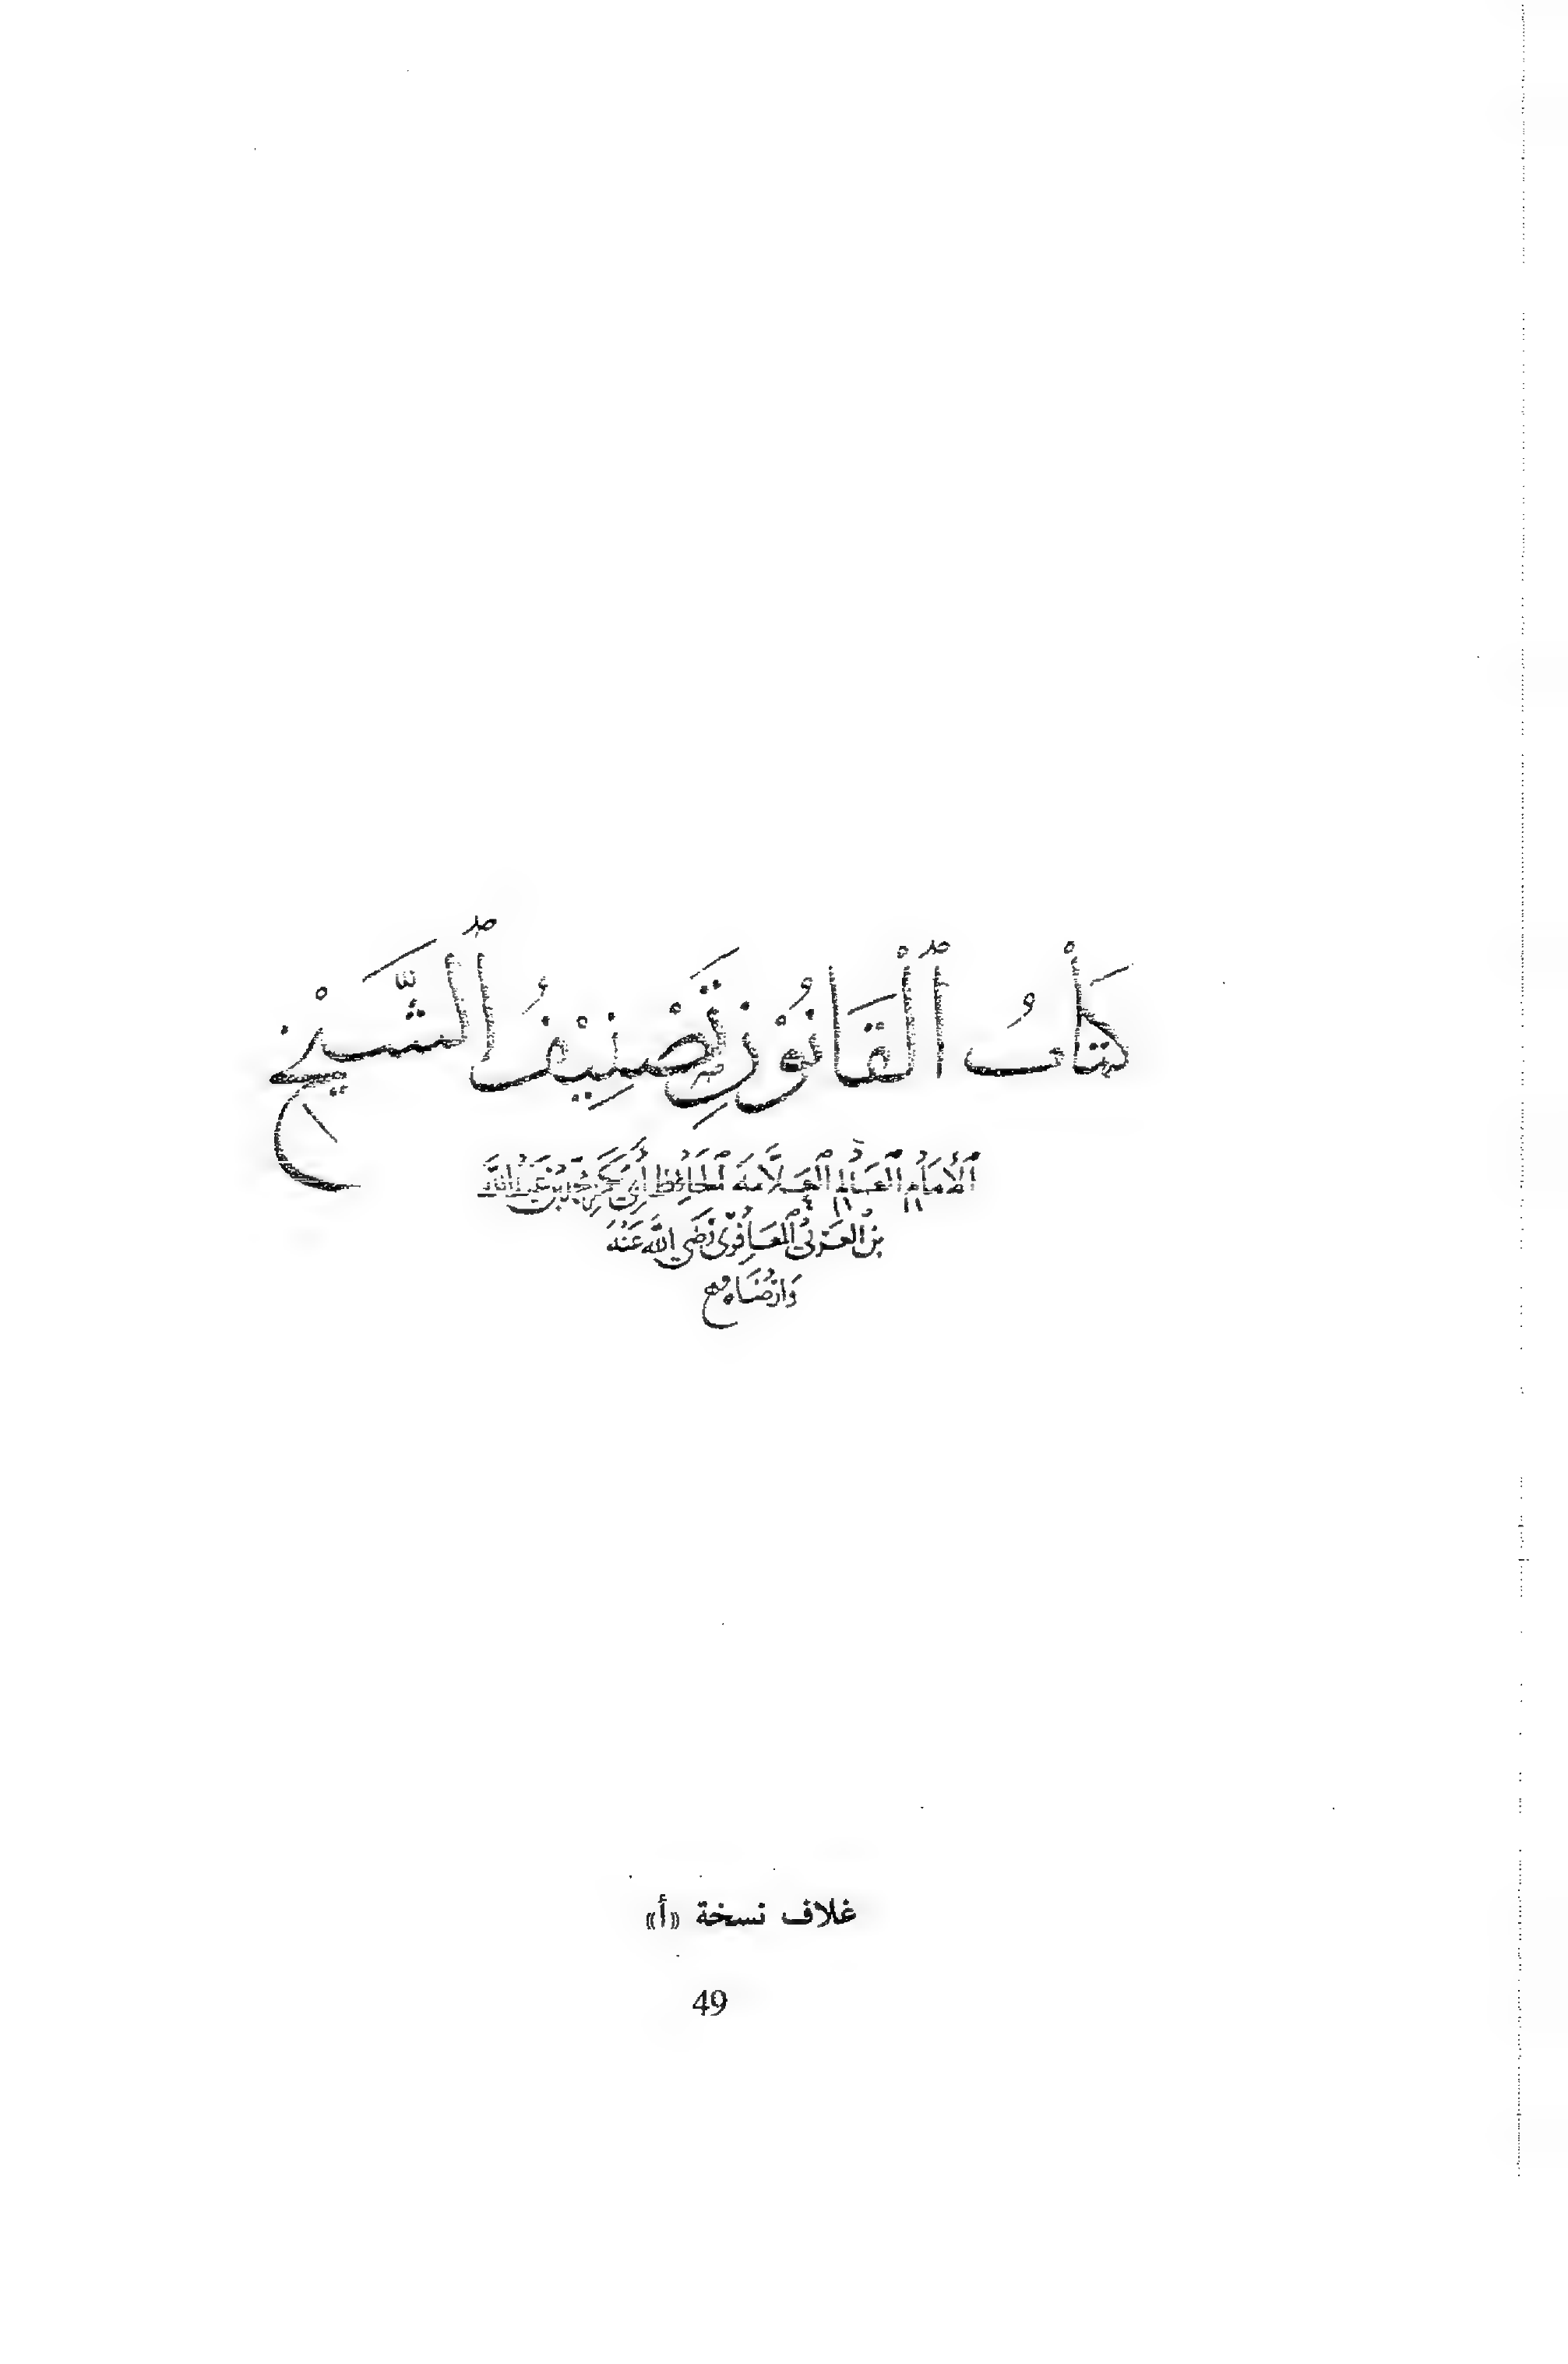 كِتَابُ ٱلْقَانُوْنِ تَصْنِيْفُ ٱلشَّيْخِ
ٱلْأَمَامِ ٱلْعَالِمِ ٱلْعَلَّامَةِ ٱلْحَافِظِ أَبِي بَكْرٍ مُحَمَّدِ بْنِ عَبْدِ اللَّهِ
بْنِ الْعَرَبِيّ ٱلْمَعَافِرِيّ رَضِيَ اللَّهُ عَنْهُ
وَارْضَاه
غلاف نسخة «أ»
49